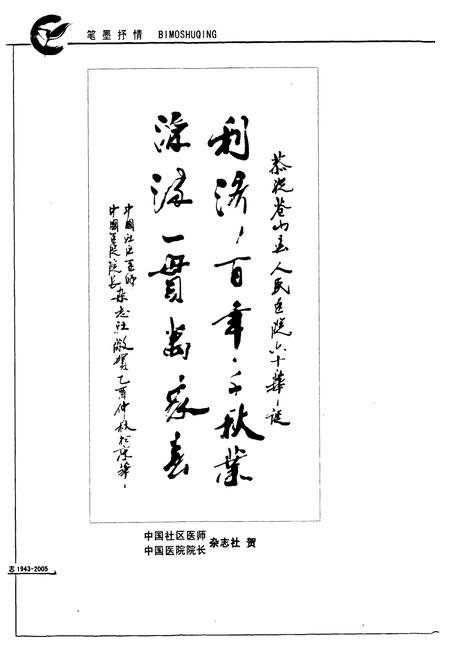 笔墨抒情 BIMOSHUQING
恭祝苍山县人民医院六十華诞
利济百年千秋業
一貫萬家春
中國社区医师
中國医院院长
杂志社敬贺乙酉仲秋於京華
中国社区医师
中国医院院长 杂志社 贺
志 1943-2005